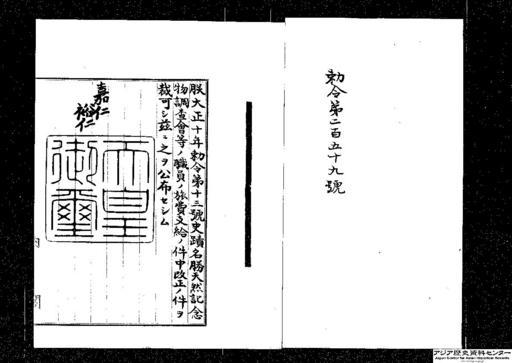 勅令第二百五十九號
朕大正十年勅令第十三號史蹟名勝天然記念
物調査會等ノ職員ノ旅費支給ノ件中改正ノ件ヲ
裁可シ茲ニ之ヲ公布セシム
嘉仁
裕仁
天皇
御璽
アジア歴史資料センター
Japan Center for Asian Historical Records